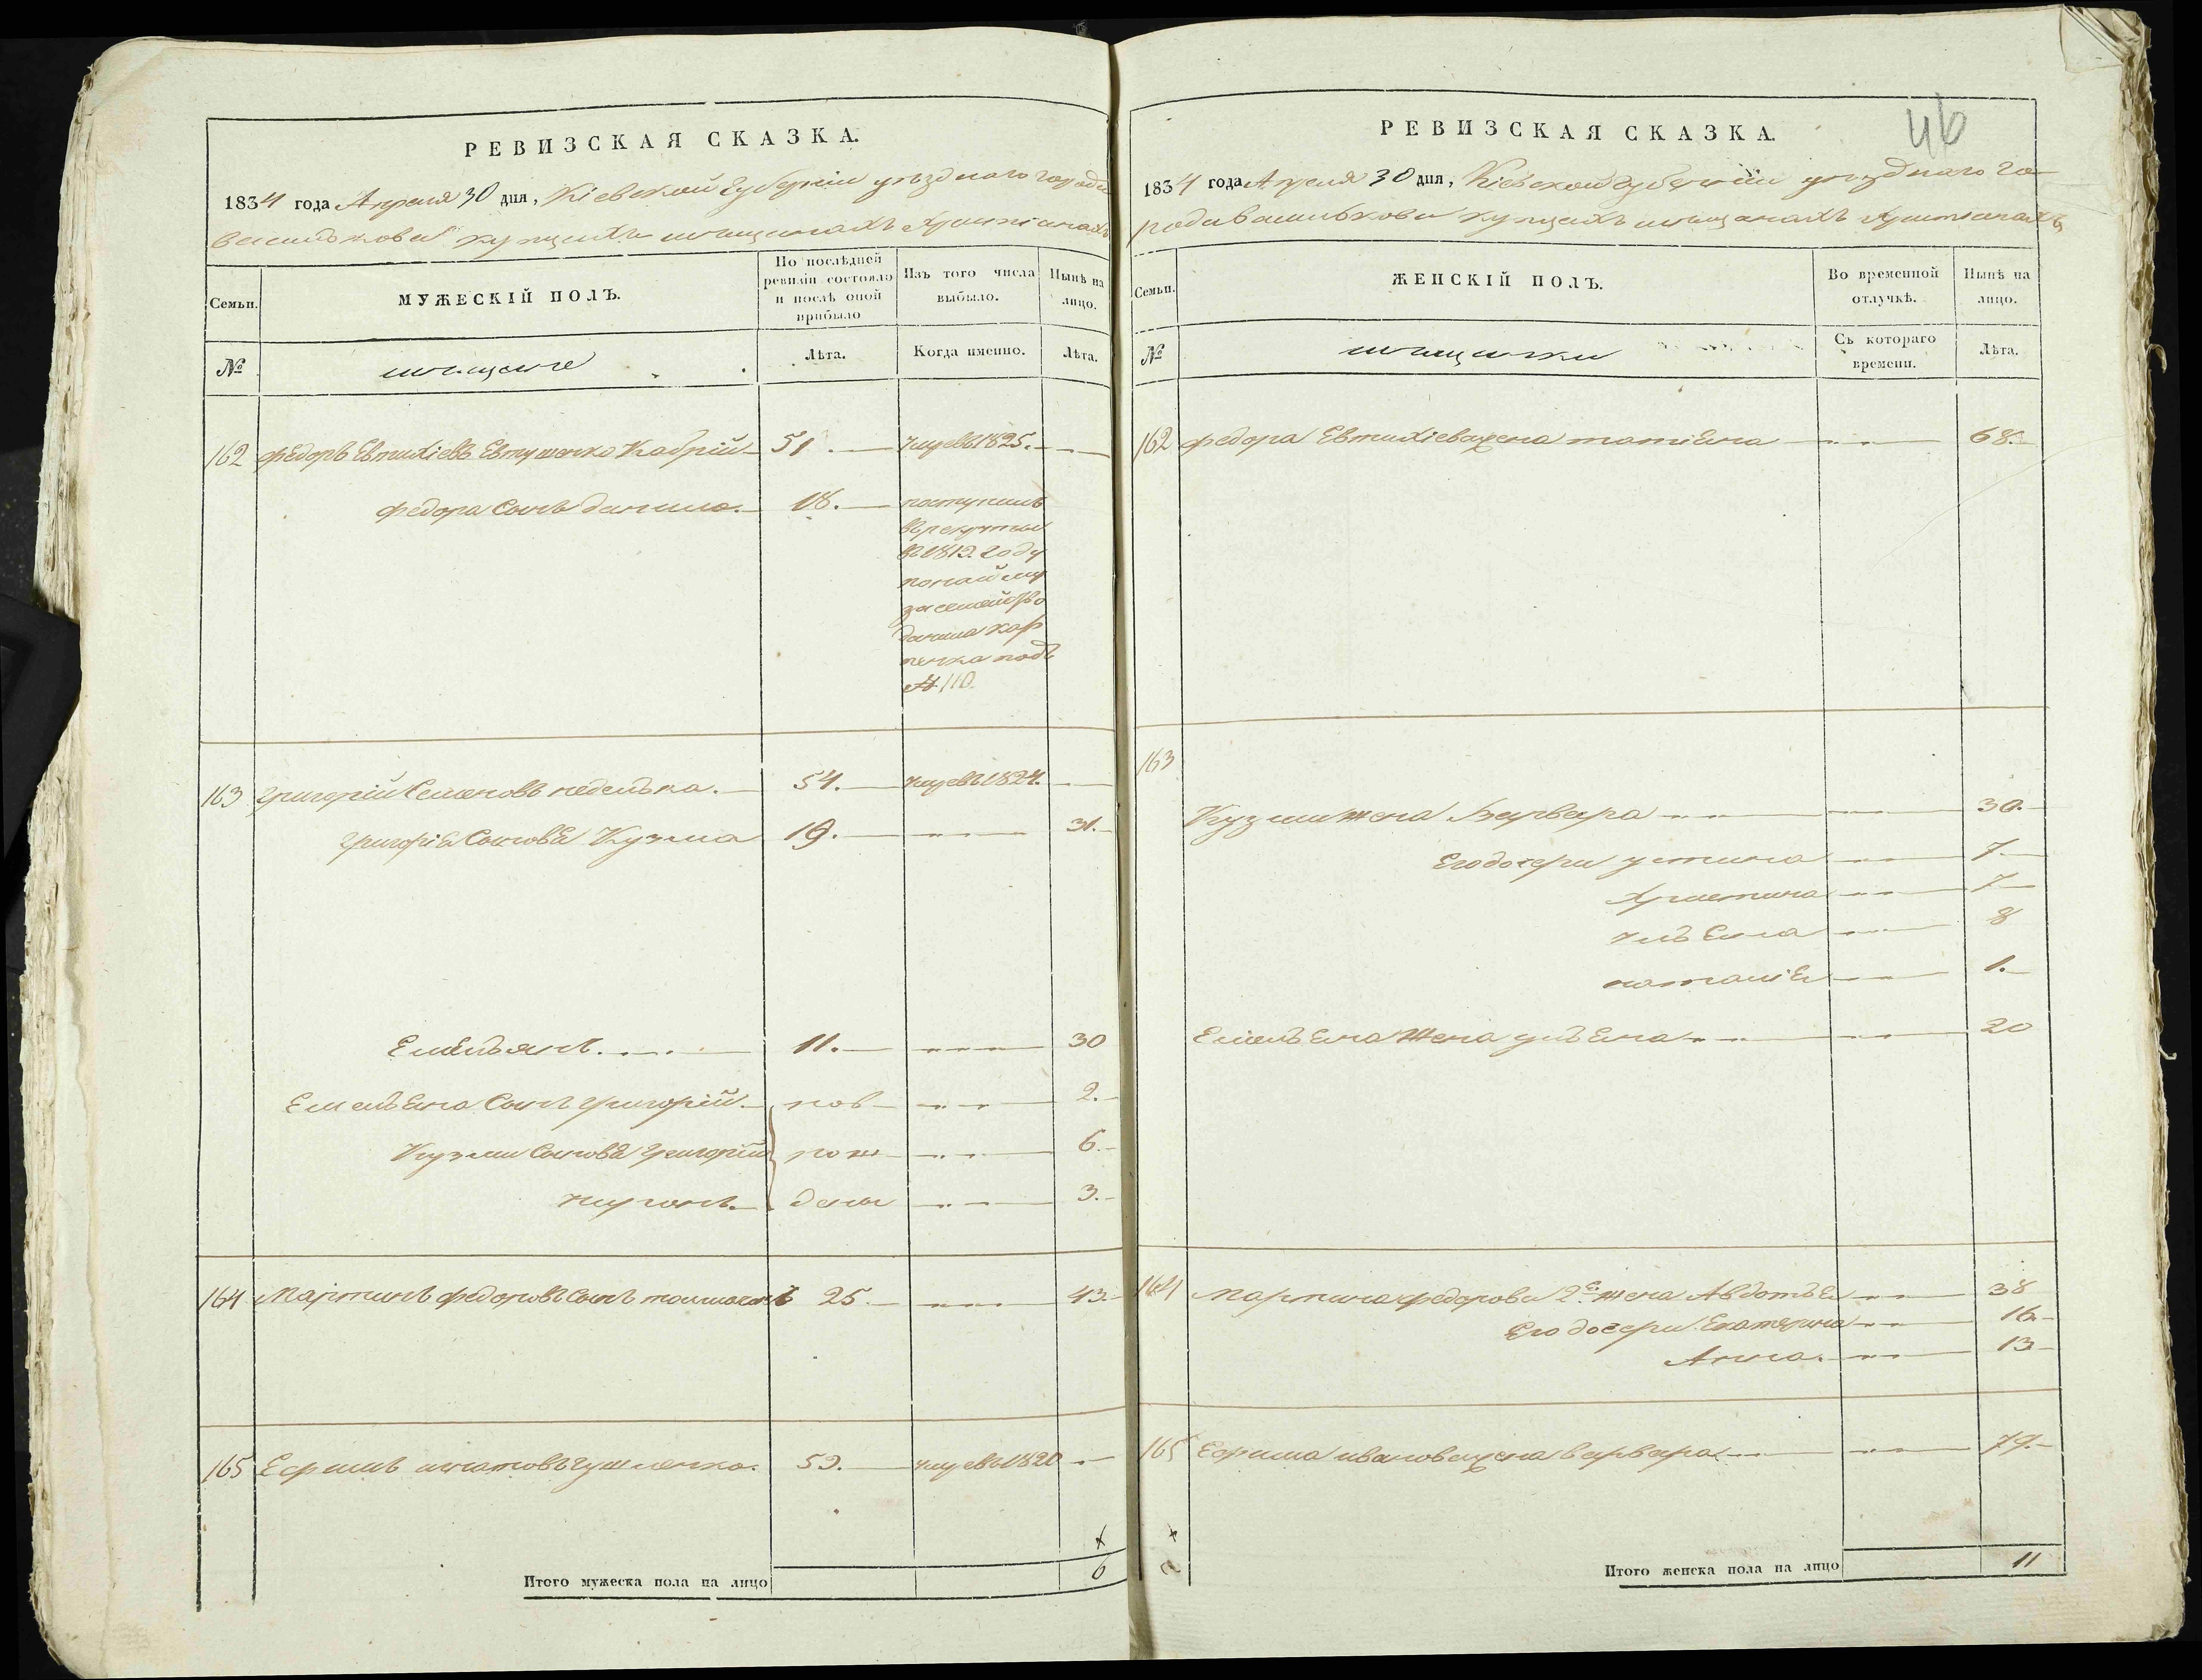 РЕВИЗСКАЯ СКАЗКА.
1834 года Апреля 30 дня, Кіевской Губерніи уезднаго города
василькова купцахъ мещанахъ
Семьи.
МУЖЕСКІЙ ПОЛЪ.
По послѣдней ревизіи состояло и послѣ оной прибыло
Изъ того числа выбыло.
Нынѣ на лицо.
№
мещане
Лѣта.
Когда именно.
Лѣта.
162 Федоръ Евтихіевъ Евтушенко 51 умре въ 1825.
Федора Сынъ данило. 18. поступилъ
въ рекруты
въ 1819. году
по найму
за семейство
данила кар
пенка подъ
№ 110.
163 григорій Семеновъ неделька. 54. умре въ 1824.
григорія Сыновья Кузма 19. 31.
Емельянъ. 11. 30
Емельяна Сынъ григорій. нов 2.
Кузмы Сыновья григорій рож 6.
дены 3.
164 Мартинъ федоровъ Сынъ 25. 43.
165 Ефимъ 59. умре въ 1820
Итого мужеска пола на лицо 6
46
РЕВИЗСКАЯ СКАЗКА.
1834 года Апреля 30 дня, Кіевской губерніи уезднаго го
рода василькова купцахъ мещанахъ
Семьи.
ЖЕНСКІЙ ПОЛЪ.
Во временной отлучкѣ.
Нынѣ на лицо.
№
мещанки
Съ котораго времени.
Лѣта.
162 федора Евтихіева жена татіяна 68.
163
Кузмы жена Варвара 30.
Его дочери устина 7
Христина 7
ульяна 8
наталія 1.
Емельяна жена ульяна 20
164 мартина федорова 2я жена Авдотья 38
Его дочери Екатерина 16
Анна. 13
165 Ефима иванова жена варвара 77.
Итого женска пола на лицо 11